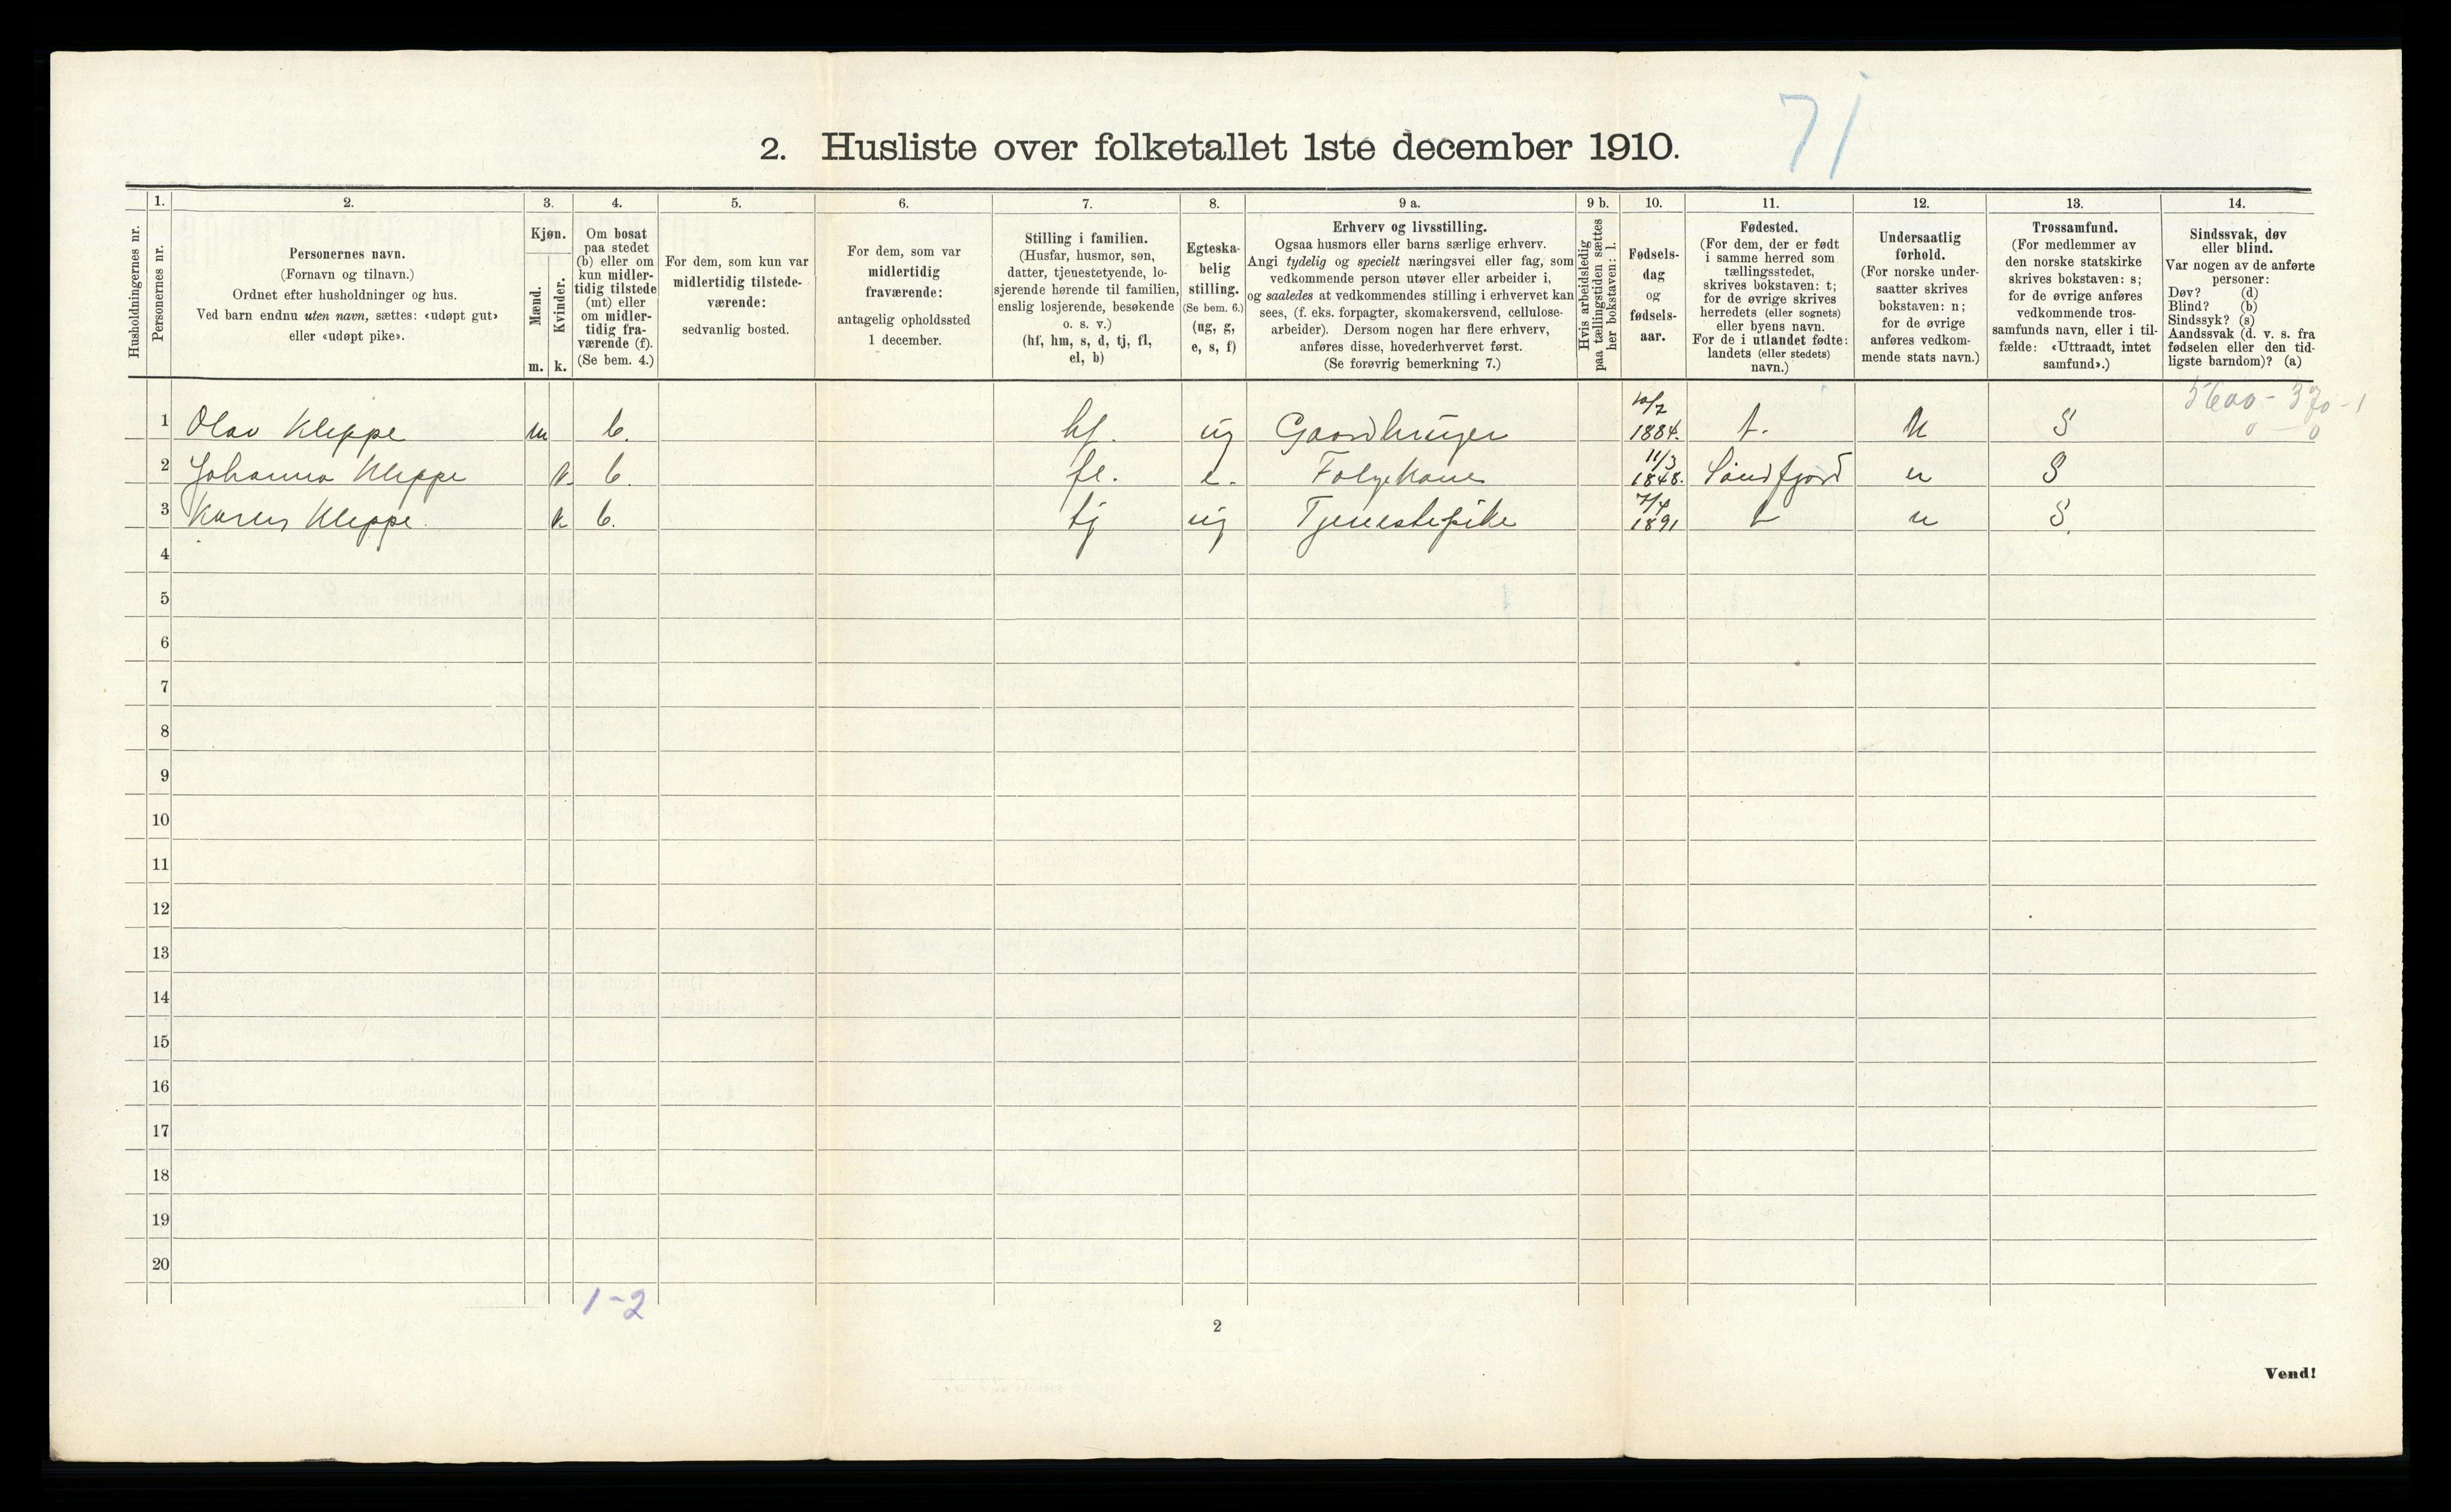 71
2. Husliste over folketallet 1ste december 1910.
Husholdningernes nr.
1.
Personernes nr.
2.
Personernes navn.
(Fornavn og tilnavn.)
Ordnet efter husholdninger og hus.
Ved barn endnu uten navn, sættes: «udøpt gut»
eller «udøpt pike».
3.
Kjøn.
Mænd.
Kvinder.
m. k.
4.
Om bosat
paa stedet
(b) eller om
kun midler-
tidig tilstede
(mt) eller
om midler-
tidig fra-
værende (f).
(Se bem. 4.)
5.
For dem, som kun var
midlertidig tilstede-
værende:
sedvanlig bosted.
6.
For dem, som var
midlertidig
fraværende:
antagelig opholdssted
1 december.
7.
Stilling i familien.
(Husfar, husmor, søn,
datter, tjenestetyende, lo-
sjerende hørende til familien,
enslig losjerende, besøkende
o. s. v.)
(hf, hm, s, d, tj, fl,
el, b)
8.
Egteska-
belig
stilling.
(Se bem. 6.)
(ug, g,
e, s, f)
9 a.
Erhverv og livsstilling.
Ogsaa husmors eller barns særlige erhverv.
Angi tydelig og specielt næringsvei eller fag, som
vedkommende person utøver eller arbeider i,
og saaledes at vedkommendes stilling i erhvervet kan
sees, (f. eks. forpagter, skomakersvend, cellulose-
arbeider). Dersom nogen har flere erhverv,
anføres disse, hovederhvervet først.
(Se forøvrig bemerkning 7.)
9 b.
Hvis arbeidsledig
paa tællingstiden sættes
her bokstaven: l.
10.
Fødsels-
dag
og
fødsels-
aar.
11.
Fødested.
(For dem, der er født
i samme herred som
tællingsstedet,
skrives bokstaven: t;
for de øvrige skrives
herredets (eller sognets)
eller byens navn.
For de i utlandet fødte:
landets (eller stedets)
navn.)
12.
Undersaatlig
forhold.
(For norske under-
saatter skrives
bokstaven: n;
for de øvrige
anføres vedkom-
mende stats navn.)
13.
Trossamfund.
(For medlemmer av
den norske statskirke
skrives bokstaven: s;
for de øvrige anføres
vedkommende tros-
samfunds navn, eller i til-
fælde: «Uttraadt, intet
samfund».)
14.
Sindssvak, døv
eller blind.
Var nogen av de anførte
personer:
Døv? (d)
Blind? (b)
Sindssyk? (s)
Aandssvak (d. v. s. fra
fødselen eller den tid-
ligste barndom)? (a)
5600 - 370 - 1
0 - 0
1 Olav Kleppe m b. hf. ug Gaardbruger 10/7 1884. t. n S
2 Johanna Kleppe k. b. fl. e. Folgekone 11/3 1848. Søndfjord n S
3 Karen Kleppe. k b. tj ug Tjenestepike 7/4 1891 t n S.
4
5
6
7
8
9
10
11
12
13
14
15
16
17
18
19
20
1-2
2
Vend!